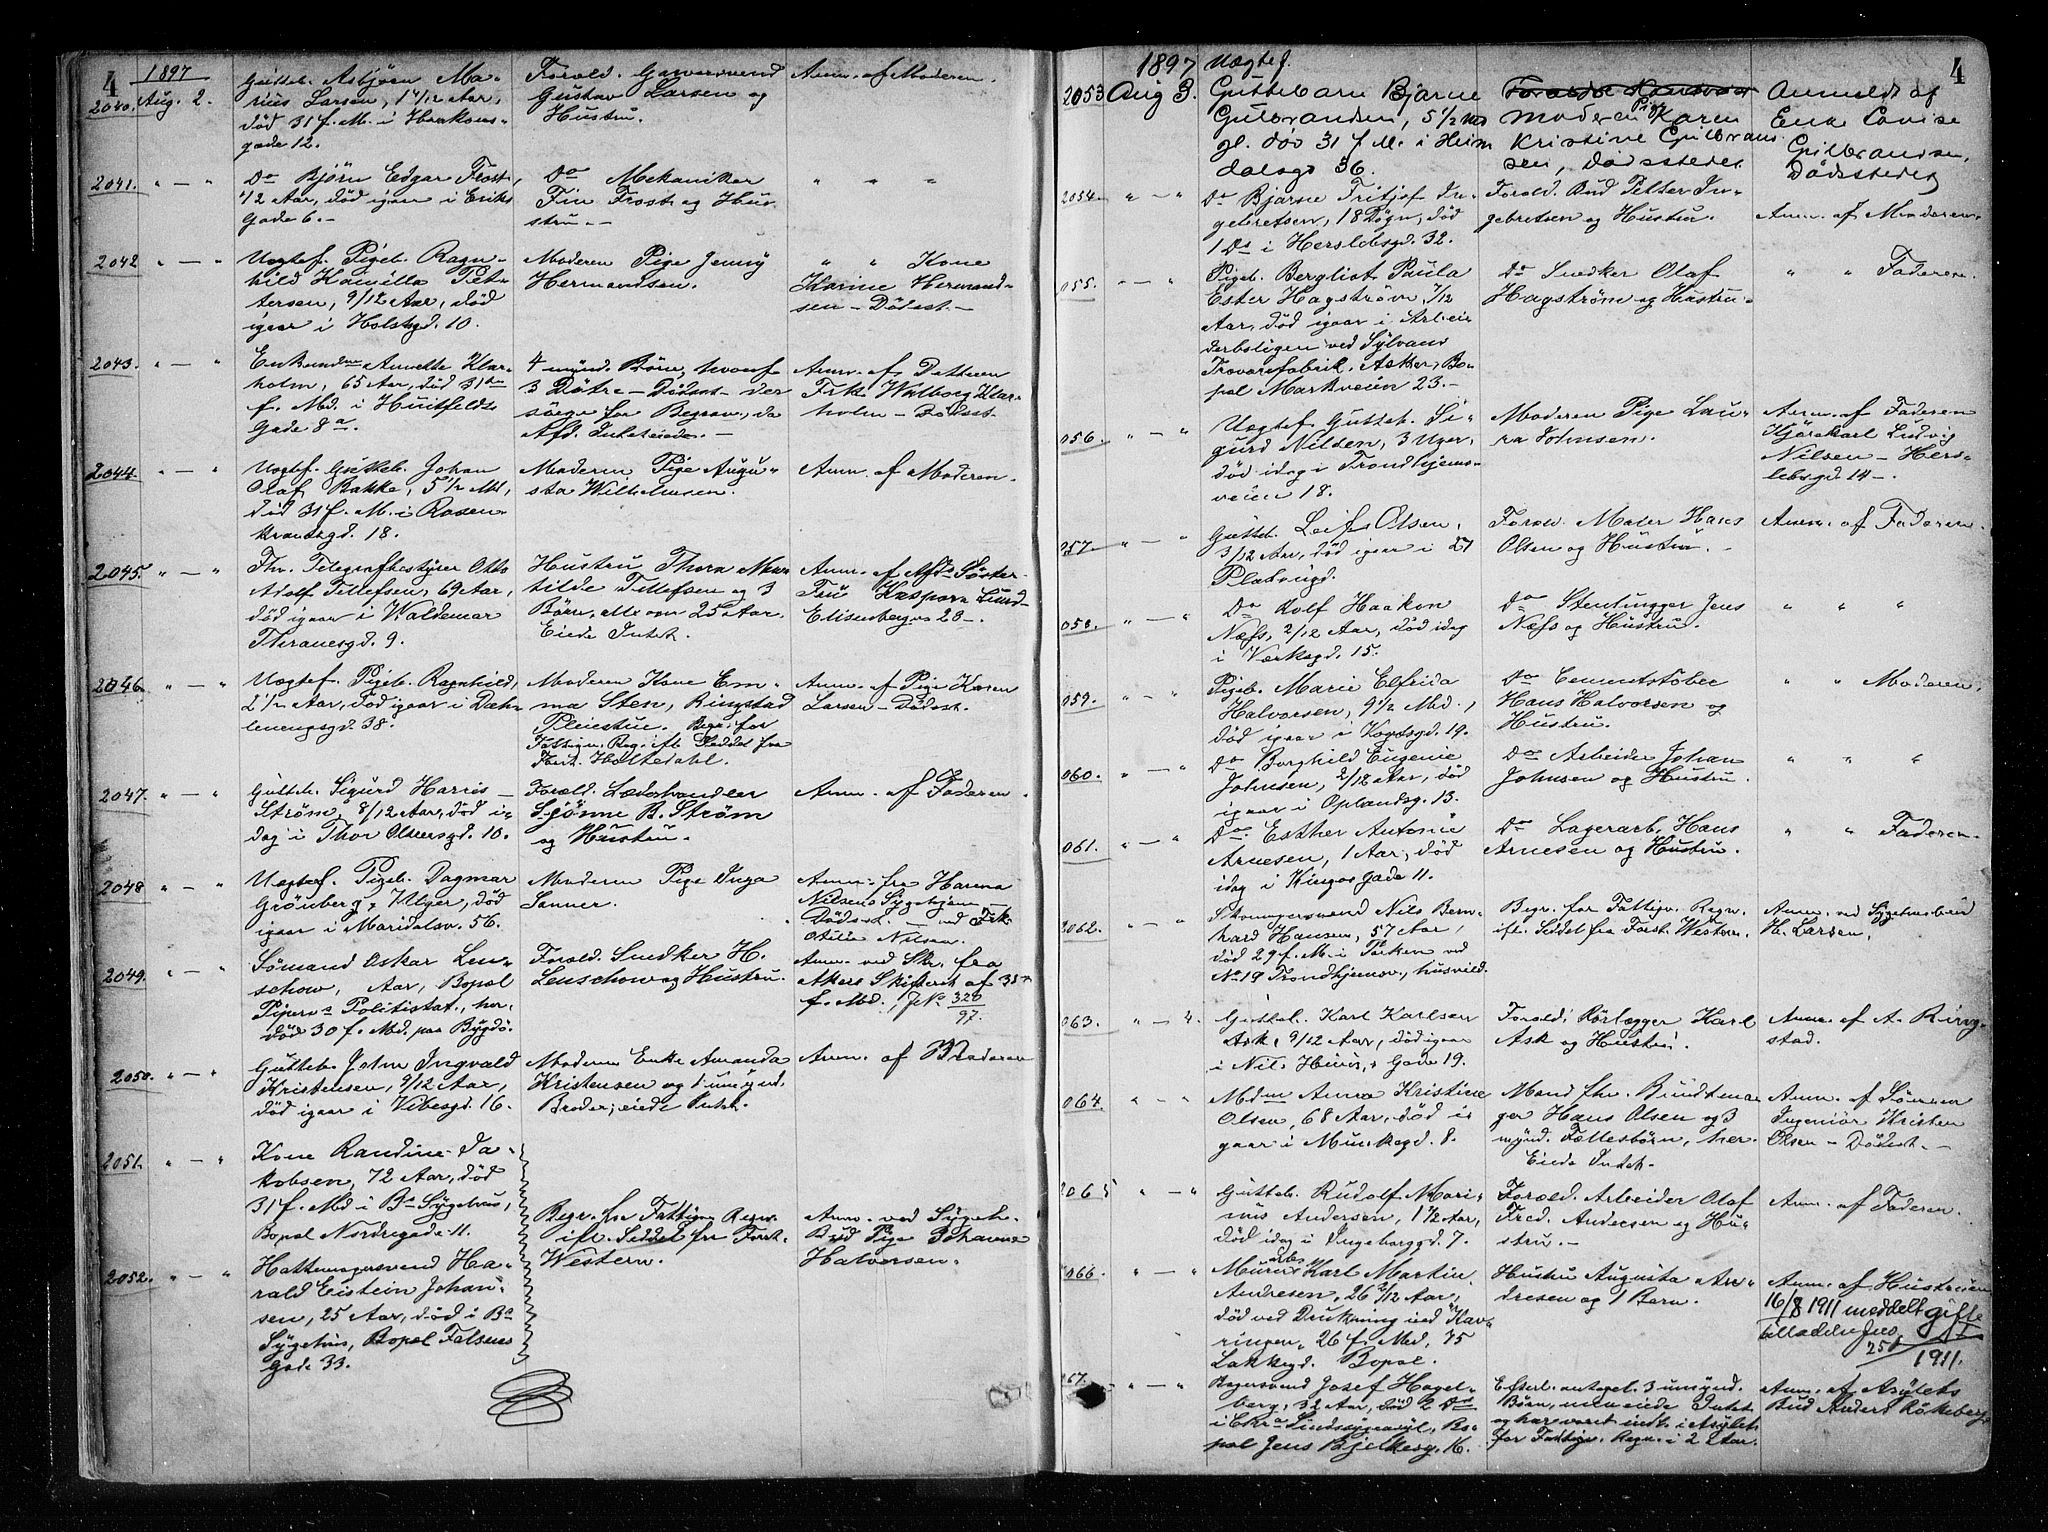 4
1897
2040. Aug. 2.
Gutteb. Asbjørn Ma-
rius Larsen, 1 4/12 Aar,
død 31 f. M. i Haakons-
gade 12.
Foræld. Garversvend
Gustav Larsen og
Hustru.
Anm. af Moderen.
2041. " — "
Do Bjørn Edgar Frost,
1/2 Aar, død igaar i Eriks
Gade 6. —
Do Mekaniker
Fin Frost og Hus-
tru. —
" " "
2042 " — "
Uægtef. Pigeb. Ragn-
hild Kamilla Pet-
tersen, 9/12 Aar, død
igaar i Holstsgd. 10.
Moderen Pige Jenny
Hermandsen.
" " Kone
Karine Hermand-
sen — Dødsst. —
2043. " — "
Enkemdm Annette Klar-
holm, 65 Aar, død 31te
f. Md. i Huitfeldts
Gade 8a.
4 mynd. Børn, hvoraf
3 Døtre — Dødsst. — der
sørge for Begrav., da
Afd. Intet eiede. —
Anm. af Datteren
Frk. Walborg Klar-
holm — Dødsst.
2044. " — "
Uægtef. Gutteb. Johan
Olaf Bakke, 5 1/2 Md.,
død 31 f. M. i Rosen-
krantzgd. 18.
Moderen Pige Augu-
sta Wilhelmsen.
Anm. af Moderen.
2045. " — "
Fhv. Telegrafbestyrer Otto
Adolf Tellefsen, 69 Aar,
død igaar i Waldemar
Thranesgd. 9.
Hustru Thora Mat-
tilde Tellefsen og 3
Børn, alle over 25 Aar.
Eiede Intet.
Anm. af Afds Søster
Fru Kaspara Lund—
Elisenbergv. 28 —.
2046. " — "
Uægtef. Pigeb. Ragnhild,
2 1/2 Aar, død igaar i Dæh-
lenengsgd. 38.
Moderen Kone Em-
ma Sten, Ringstad
Pleiestue. Begr. for
Fattigv. Reg. ifl. Seddel fra
Forst. Holtedahl.
Anm. af Pige Karen
Larsen — Dødsst.
2047. " — "
Gutteb. Sigurd Harris —
Strøm, 8/12 Aar, død i-
dag i Thor Olsensgd. 10.
Foræld. Læderhandler
Sjønne B. Strøm
og Hustru.
Anm. af Faderen.
2048 " — "
Uægtef. Pigeb. Dagmar
Grønberg, Uger, død
igaar i Maridalsv. 56.
Moderen Pige Inga
Sanner.
Anm. fra Harena
Nilsens Sygehjem —
Dødsst. — ved Frk.
Otilie Nilsen.
2049. " — "
Sømand Oskar Len-
schow, Aar, Bopæl
Pipervs Politistat., her-
død 30 f. Md. paa Bygdø.
Foræld. Snedker H.
Lenschow og Hustru.
Anm. ved Skr. fra
Akers Skifteret af 31te
f. Md., J No 326
97.
2050. " — "
Gutteb. John Ingvald
Kristensen, 9/12 Aar,
død igaar i Vibesgd. 16.
Moderen Enke Amanda
Kristensen og 1 umynd.
Broder; eiede Intet.
Anm. af Moderen
2051. " — "
Kone Randine Ja-
kobsen, 72 Aar, død
31 f. Md i Bs Sygehus,
Bopæl Nordregade 11.
Begr. for Fattigv. Regn.
ifl. Seddel fra Forst.
Western.
Anm. ved Sygeh.
Bud Pige Johanne
Halvorsen.
2052. " — "
Hattemagersvend Ha-
rald Eistein Johan-
sen, 25 Aar, død i Bs
Sygehus, Bopæl Falsens
Gade 33.
4
1897
2053 Aug 3.
Uægtef.
Guttebarn Bjarne
Gulbrandsen, 5 1/2 Md
gl. død 31 f M. i Heim
dalsgd 36.
Moderen Pige Karen
Kristine Gulbrand
sen, Dødsstedet
Anmeldt af
Enke Lovise
Gulbrandsen,
Dødsstedet
2054. " — "
Do Bjarne Fritjof In-
gebretsen, 18 Døgn, død
1 Ds i Herslebsgd. 32.
Foræld. Bud Petter In-
gebretsen og Hustru.
Anm. af Moderen.
055. " — "
Pigeb. Bergliot Paula
Ester Hagstrøm, 7/12
Aar, død igaar i Arbei-
derboligen ved Sylvans
Trævarefabrik, Asker, Bo-
pæl Markveien 23. —
Do Snedker Olaf
Hagstrøm og Hustru.
" " Faderen.
056. " — "
Uægtef. Gutteb. Si-
gurd Nilsen, 3 Uger,
død idag i Trondhjems-
veien 18.
Moderen Pige Lau-
ra Johnsen.
Anm. af Faderen
Kjørekarl Ludvig
Nilsen — Hers-
lebsgd. 14 —.
057. " — "
Gutteb. Leif Olsen,
3/12 Aar, død igaar i 27
Platousgd.
Foræld. Maler Hans
Olsen og Hustru. —
Anm. af Faderen.
058. " — "
Do Rolf Haakon
Næss, 2/12 Aar, død idag
i Værksgd. 15.
Do Stenhugger Jens
Næss og Hustru.
" " "
059. " — "
Pigeb. Marie Elfrida
Halvorsen, 9 1/2 Md.,
død igaar i Vogtsgd. 19.
Do Cementstøber
Hans Halvorsen og
Hustru.
" " Moderen.
060. " — "
Do Borghild Eugenie
Johnsen, 2/12 Aar, død
igaar i Oplandsg. 13.
Do Arbeider Johan
Johnsen og Hustru.
" " "
061. " — "
Do Esther Antonie
Arnesen, 1 Aar, død
idag i Kingosgade 11.
Do Lagerarb. Hans
Arnesen og Hustru.
" " Faderen.
2062. " — "
Skomagersvend Nils Bern-
hard Hansen, 57 Aar,
død 29 f. M. i Parken ved
No 19 Trondhjemsv., husvild.
Begr. for Fattigv. Regn.
ifl. Seddel fra Forst. Western.
Anm. ved Sygehusbud
H. Larsen.
063. " — 4.
Gutteb. Karl Karlsen
Ask, 9/12 Aar, død igaar
i Nils Huus's Gade 19.
Foræld. Rørlægger Karl
Ask og Hustru.
Anm. af A. Ring-
stad.
064. " — "
Mdm Anna Kristine
Olsen, 68 Aar, død i-
gaar i Munkegd. 8.
Mand fhv. Buntma-
ger Hans Olsen og 3
mynd. Fællesbørn, her.
Eiede Intet.
Anm. af Sønnen
Ingeniør Kristen
Olsen — Dødsst. —
2065 " — "
Gutteb. Rudolf Mari-
nus Andersen, 1 1/12 Aar,
død idag i Ingeborggd. 7.
Foræld. Arbeider Olaf
Fred. Andersen og Hu-
stru. —
Anm. af Faderen.
066. " — "
Murerarb. Karl Martin
Andresen, 26 2/12 Aar,
død ved Drukning ved "Kav-
ringen" 26 f. Md., 75
Lakkegd. Bopæl.
Hustru Augusta An-
dresen og 1 Barn.
Anm. af Hustruen
16/8 1911 meddelt gifte
tilladelse
251
1911.
067. " — "
Bagersvend Josef Hagel-
berg, 32 Aar, død 2 Ds
i Chra Sindsygeasyl, Bo-
pæl Jens Bjelkesg. 16.
Efterl. antagel. 3 umynd.
Børn, men eiede Intet
og har været indl. i Asylet
for Fattigv. Regn. i 2 Aar.
Anm. af Asylets
Bud Anders Røkeberg